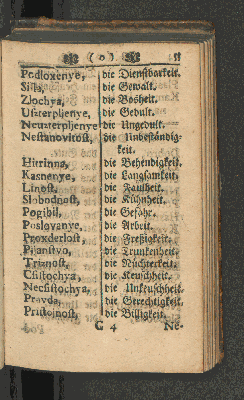 ( o )
Podloxenye, die Dienstbarkeit.
Silla, die Gewalt.
Zlochya, die Bosheit.
Uſzterpljenye, die Gedult.
Neuzterpljenye die Ungedult.
Neſtanovitoſt, die Unbeständigkeit.
Hitrinna, die Behendigkeit.
Kasnenye, die Langsamkeit.
Linoſt, die Faulheit.
Slobodnoſt, die Kühnheit.
Pogibil, die Gefahr.
Poslovanye, die Arbeit.
Proxderloſt, die Freßigkeit.
Pijanſtvo, die Trunkenheit.
Triznoſt, die Nüchterkeit.
Cſiſtochya, die Keuschheit.
Necſiſtochya, die Unkeuschheit.
Pravda, die Gerechtigkeit.
Priſtojnoſt, die Billigkeit.
C 4 Ne-